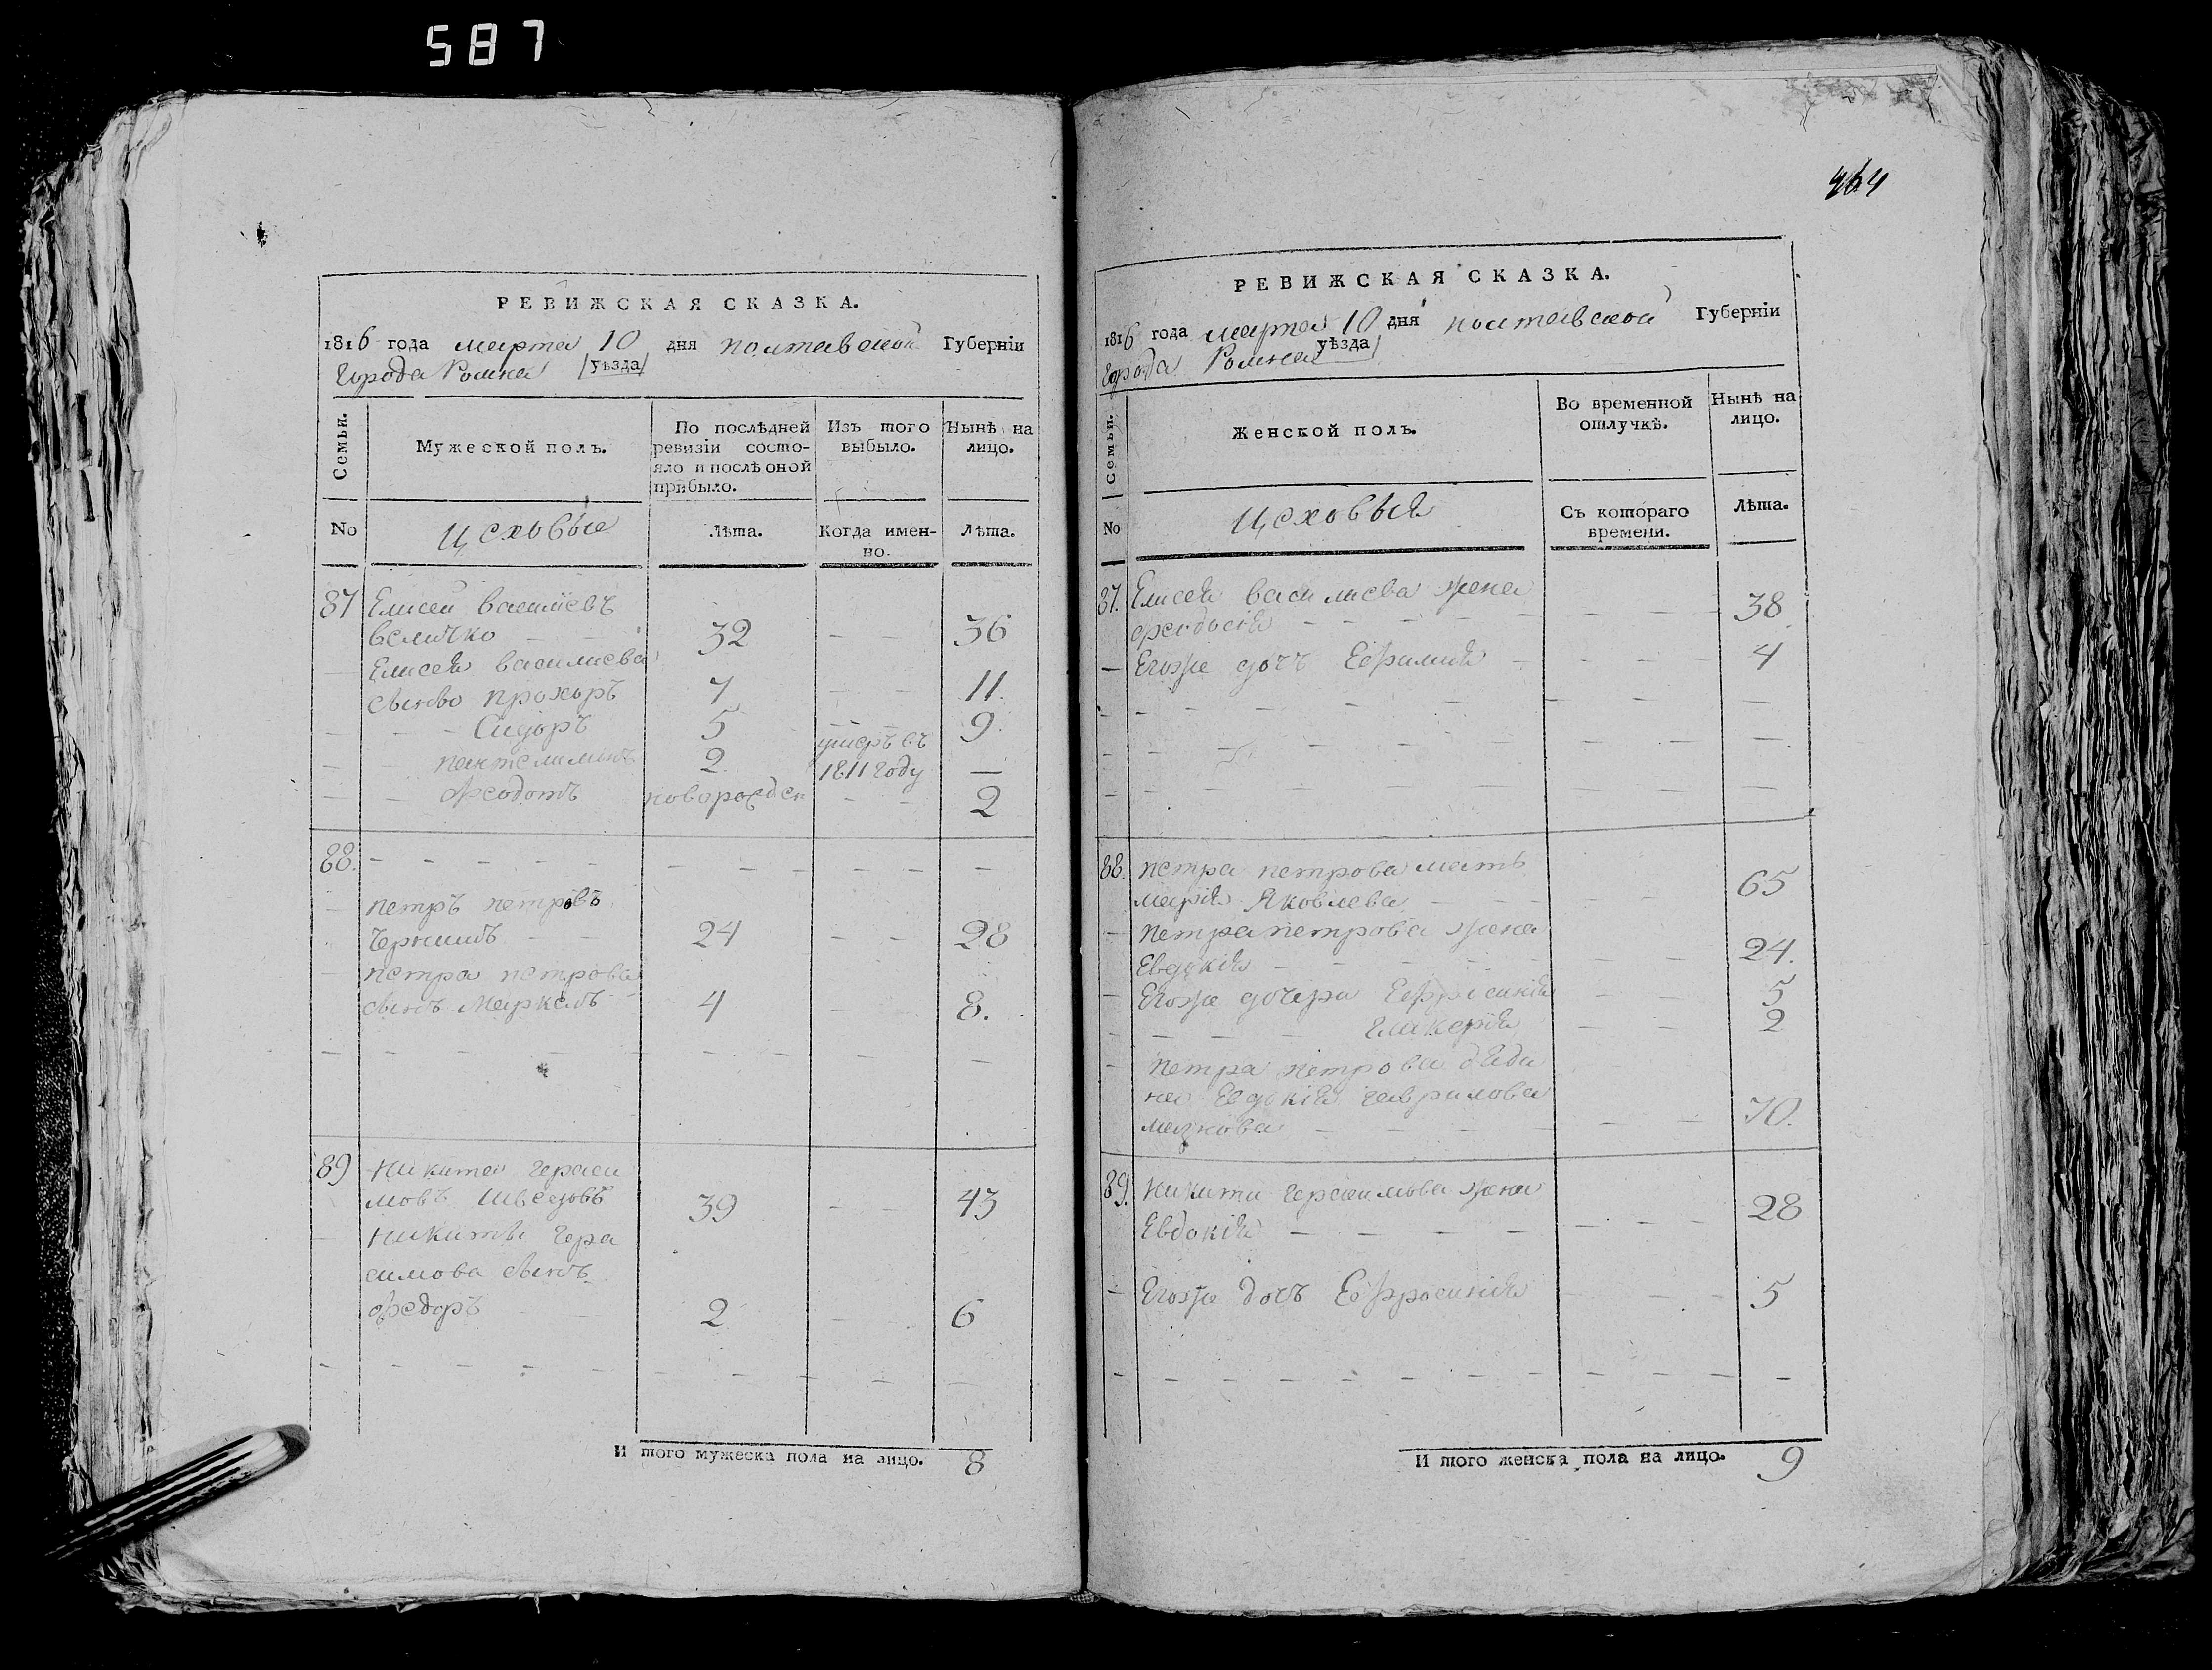 587
РЕВИЖСКАЯ СКАЗКА.
1816 года марта 10 дня полтавской Губерніи
Города Ромна уѣзда
Семьи.
Мужеской полъ.
По послѣдней ревизіи состояло и послѣ оной прибыло.
Изъ того выбыло.
Нынѣ на лицо.
No
Цеховые
Лѣта.
Когда именно.
Лѣта.
87 Елисей василіевъ
величко - - 32 - - 36
— Елисея василиева
сыново прохоръ 7 - - 11.
— - - Сидоръ 5 9.
— - пантелимонъ 2. умеръ въ 1811 году —
— - Феодотъ новорожден - - 2
88. - - - - - - - - - - -
— петръ петровъ
- - 24 - - 28
— петра петрова
сынъ Маркелъ 4 - - 8.
- - - - - - - - - -
89 Никита Гераси
мовъ Шведовъ 39 - - 43
— Никиты Гера
симова сынъ
Федоръ - 2 - - 6
- - - - - - - - - -
И того мужеска пола на лицо. 8
464
РЕВИЖСКАЯ СКАЗКА.
1816 года марта 10 дня полтавской Губерніи
Города Ромна уѣзда
Семьи.
Женской полъ.
Во временной отлучкѣ.
Нынѣ на лицо.
No
Цеховыя
Съ котораго времени.
Лѣта.
87. Елисея василиева жена
Феодосія - - - - - - - - 38
— Егоже дочъ Ефимия - - - - 4
- - - - - - - - - -
- - - - - - - - - -
- - - - - - - - - -
88. петра петрова мать
марія Яковлева - - - - - 65
— петра петрова жена
Евдокія - - - - - - - - 24.
— Егоже дочери Ефросинія - - 5
- - - - Гликерія - - 2
- петра петрова
на Евдокія гаврилова
- - - - - - - 70.
89. Никиты герасимова жена
Евдокія - - - - - - - 28
- Егоже дочъ Ефросинія - - - - 5
- - - - - - - - - - -
И того женска пола на лицо. 9